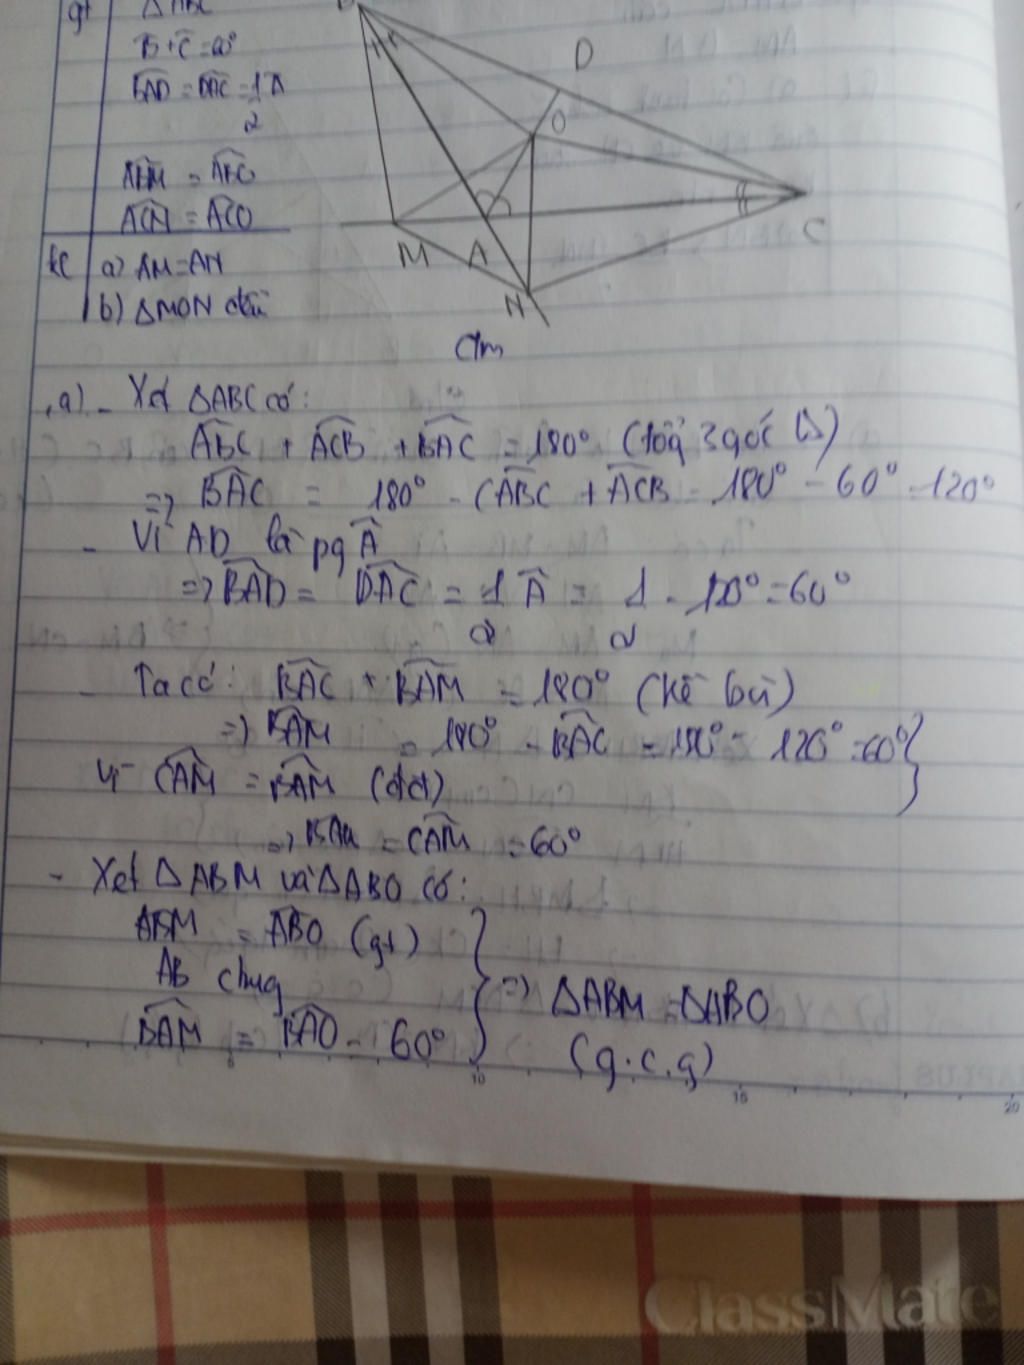 gt ΔABC
B̂ + Ĉ = 60°
BAD = DAC = 1/2 A
ABM = ABO
ACN = ACO
kl a) AM = AN
b) ΔMON đều
B
D
O
C
M A
N
Cm
a) - Xét ΔABC có:
ABC + ACB + BAC = 180° (tổng 3 góc Δ)
=> BAC = 180° - (ABC + ACB = 180° - 60° = 120°
- Vì AD là pg Â
=> BAD = DAC = 1/2 Â = 1/2 . 120° = 60°
- Ta có: BAC + BAM = 180° (kề bù)
=> BAM = 180° - BAC = 180° - 120° = 60°
Vì CAN = BAM (đđ)
=> BAM = CAN = 60°
- Xét ΔABM và ΔABO có:
ABM = ABO (gt)
AB chug
BAM = BAO = 60°
=> ΔABM = ΔABO
(g.c.g)
10
15
20
ClassMate